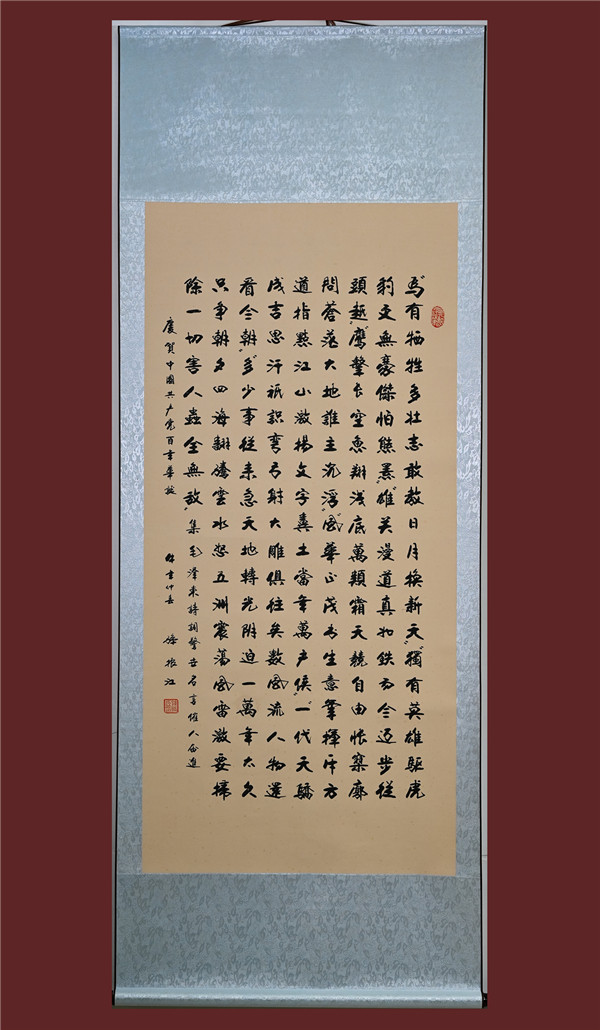 "為有牺牲多壮志敢教日月换新天""獨有英雄驅虎
豹更無豪傑怕熊羆""雄关漫道真如鉄而今迈步従
頭越""鷹擊长空魚翔浅底萬類霜天競自由怅寥廓
問蒼茫大地誰主沉浮""風華正茂书生意氣揮斥方
遒指點江山激揚文字糞土當年萬户侯""一代天驕
成吉思汗祇識弯弓射大雕俱往矣数風流人物還
看今朝""多少事従来急天地轉光阴迫一萬年太久
只争朝夕四海翻騰雲水怒五洲震荡風雷激要掃
除一切害人蟲全無敌"集毛泽東詩詞警世名言催人奋進
慶贺中國共产党百年華诞 仲春 徐振江